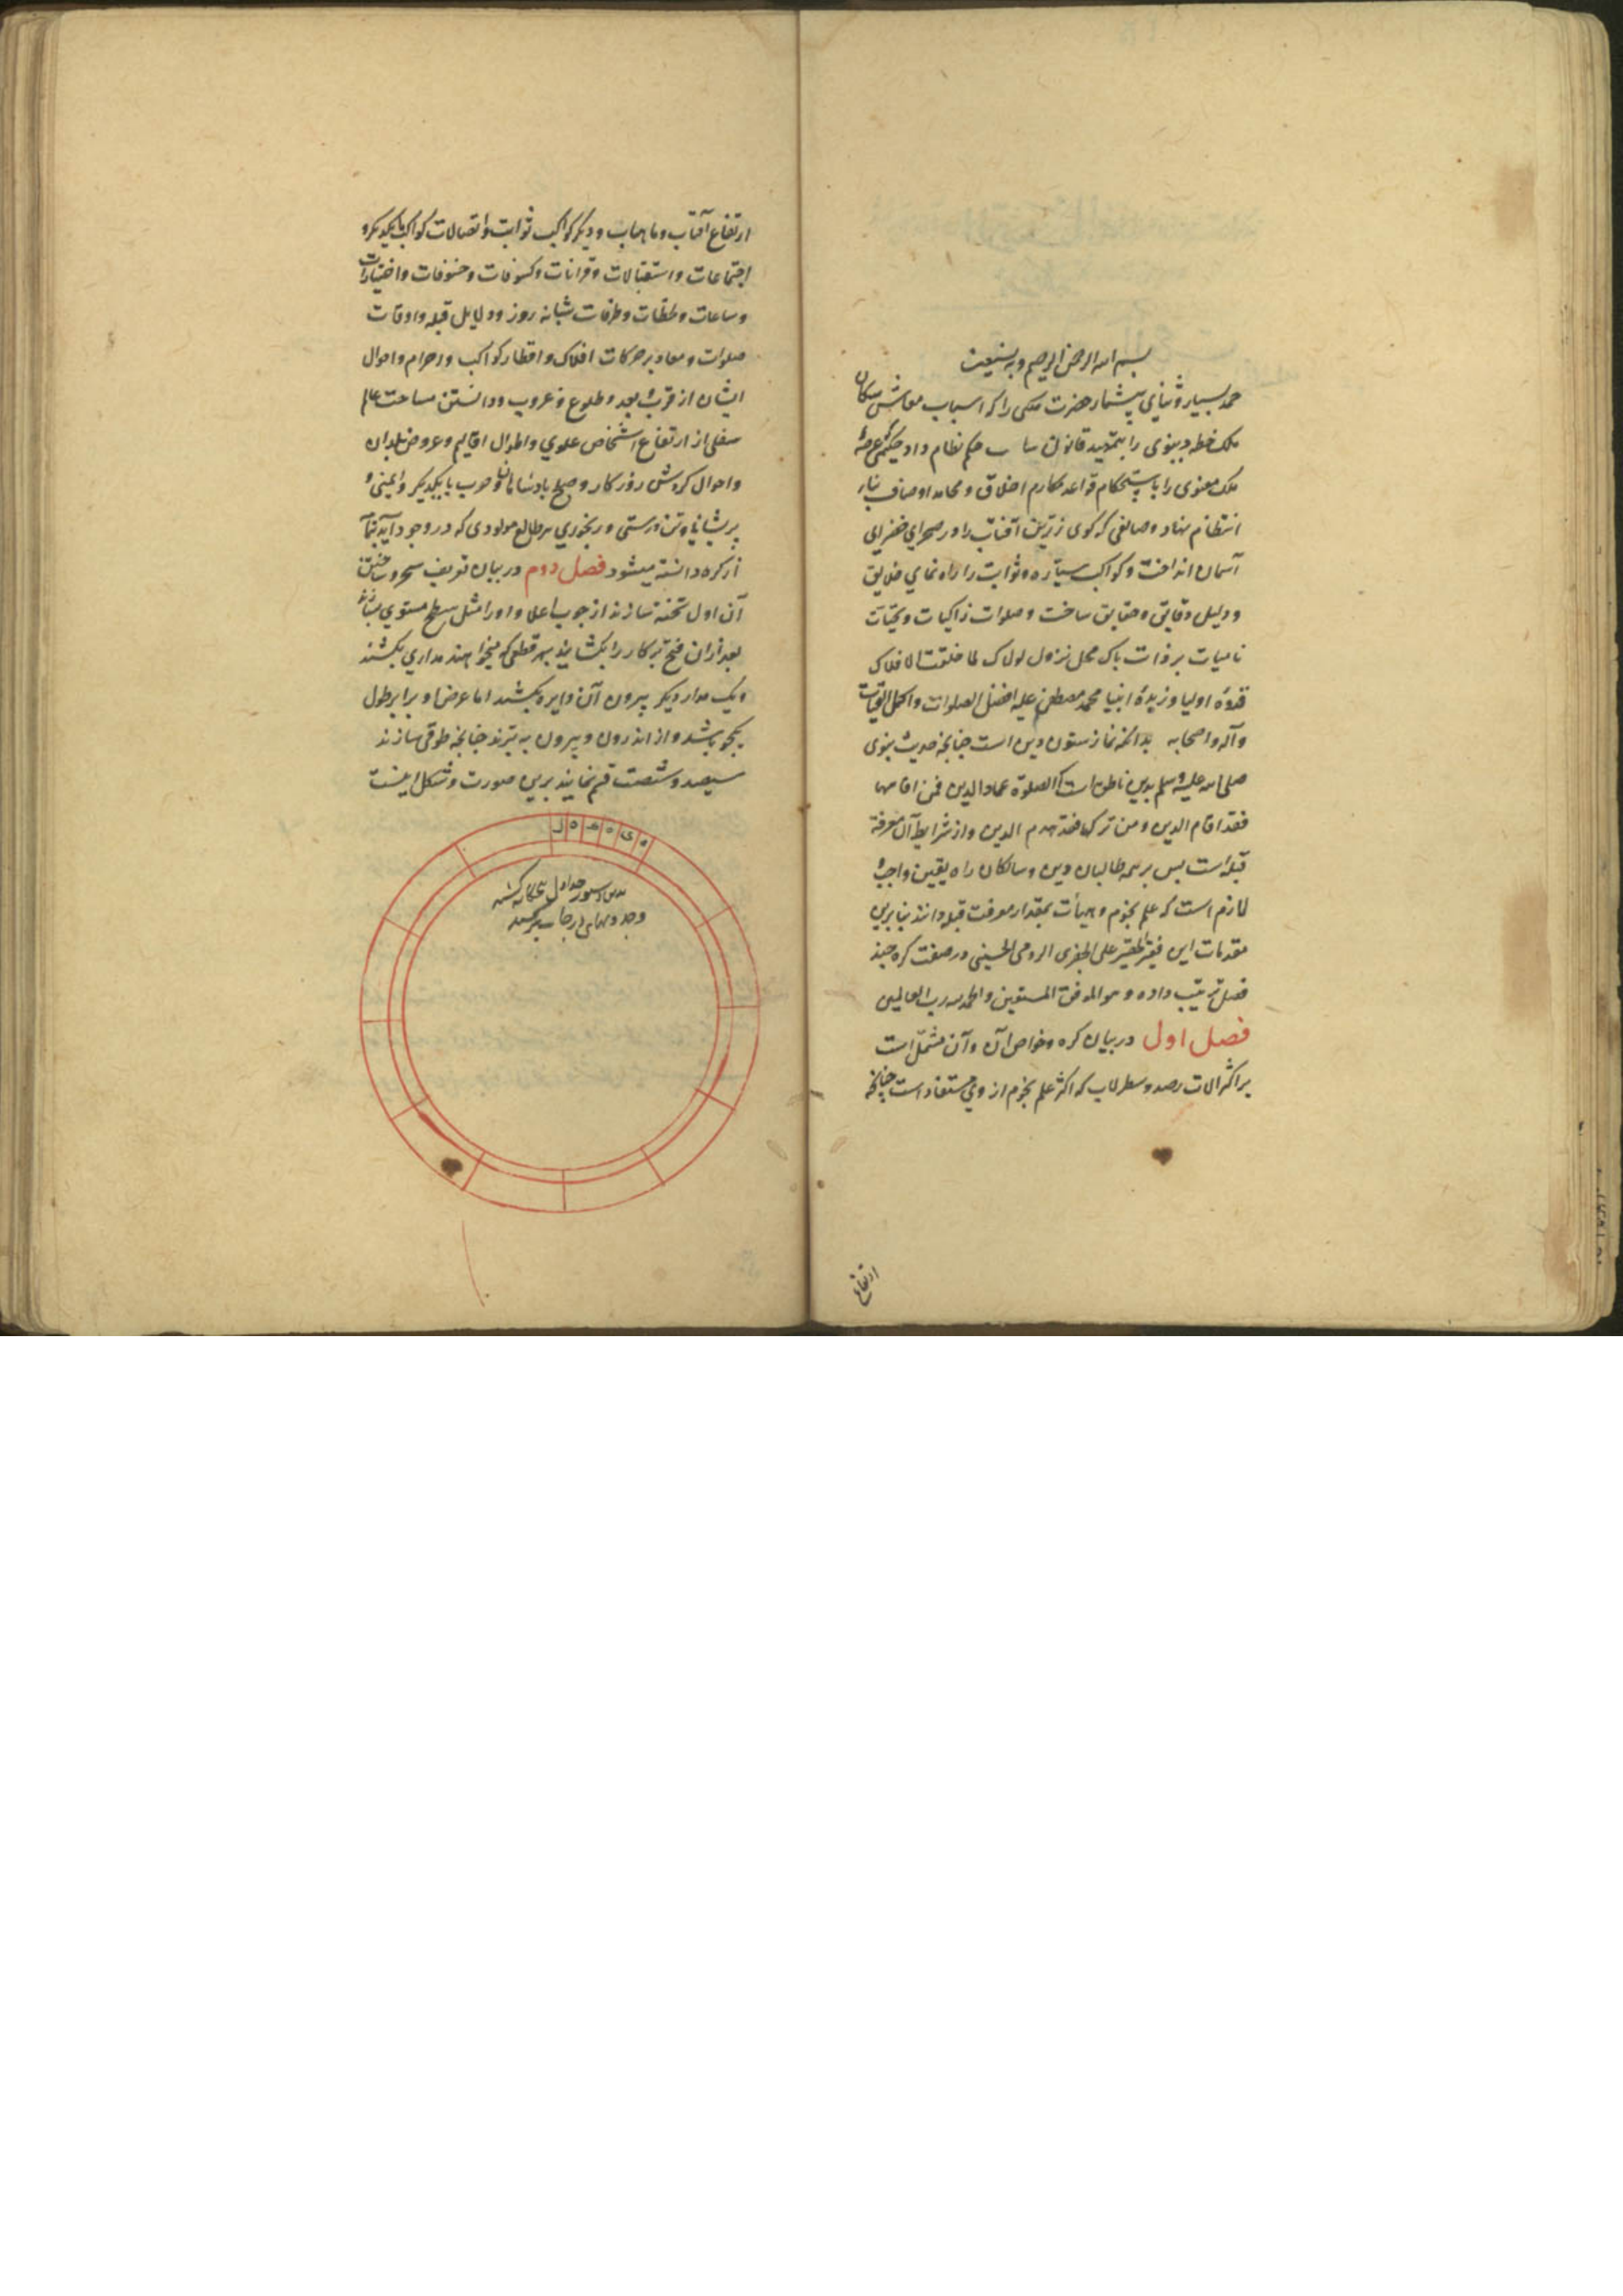 بسم الله الرحمن الرحیم وبه نستعین
حمد بسیار و ثنای بیشمار حضرت ملکی را که اسباب معاش سکان
ملک خطه دینوی را بتمهید قانون حکم نظام داد و حکیمی که عرصهٔ
ملک معنوی را باستحکام قواعد مکارم اخلاق و محامد اوصاف
انتظام نهاد و صانعی که کوی زرین آفتاب را در صحرای خضرای
آسمان انداخت و کواکب سیاره و ثوابت را راه نمای خلایق
و دلیل دقایق و حقایق ساخت و صلوات زاکیات و تحیات
نامیات بر ذات پاک محل نزول لولاک لما خلقت الافلاک
قدوهٔ اولیا و زبدهٔ انبیا محمد مصطفی علیه افضل الصلوات و اکمل التحیات
و آله و اصحابه بدانکه نماز ستون دین است چنانچه حدیث نبوی
صلی الله علیه وسلم بدین ناطق است که الصلوة عماد الدین فمن اقامها
فقد اقام الدین ومن ترکها فقد هدم الدین و از شرایط آن معرفة
قبله است پس بر همه طالبان دین و سالکان راه یقین واجب و
لازم است که علم نجوم و هیأت بمقدار معرفت قبله دانند بنابرین
مقدمات این فقیر الحقیر علی الجفری الرومی الحسینی در صفت کره چند
فصل ترتیب داده و هو الموفق المستعین والحمد لله رب العالمین
فصل اول در بیان کره و خواص آن و آن مشتمل است
بر اکثر الات رصد و سطرلاب که اکثر علم نجوم از وی مستفاد است چنانچه
ارتفاع
ارتفاع آفتاب و ماهتاب و دیگر کواکب ثوابت و اتصالات کواکب بایکدیگر و
اجتماعات و استقبالات و قرانات و کسوفات و خسوفات و اختیارات
و ساعات و لحظات و طرفات شبانه روز و دلایل قبله و اوقات
صلوات و معاد بر حرکات افلاک و اقطار کواکب و اجرام و احوال
ایشان از قرب و بعد و طلوع و غروب و دانستن مساحت عالم
سفلی از ارتفاع اشخاص علوی و اطوال اقالیم و عروض بلدان
و احوال کردش روزکار و صلح بادشاهان و حرب بایکدیکر و ایمنی و
پریشانی و تن درستی و رنجوری هر طالع مولودی که در وجود آید بتمامه
از کره دانسته میشود فصل دوم در بیان تعریف سحر و ساختن
آن اول تخته سازند از چوب اعلا و اورا مثل سطح مستوی
بعد از آن فتح پرکار را بکشایند بهر قطعی که میخواهند مداری بکشند
و یک مدار دیکر بیرون آن دایره بکشند اما عرض او برابر طول
یکجو باشد و از اندرون و بیرون به بُرند چنانچه طوقی سازند
سیصد و شصت قسم نمایند برین صورت و شکل اینست